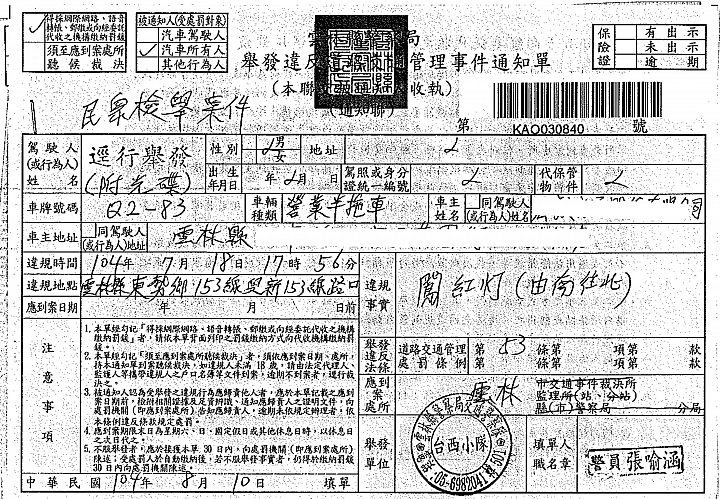 ✓ 得採網際網路、語音轉帳、郵繳或向經委託代收之機構繳納罰鍰
須至應到案處所聽候裁決
被通知人(受處罰對象)
汽車駕駛人
✓ 汽車所有人
其他行為人
保險證
有出示
未出示
逾期
舉發違反 管理事件通知單
(本聯 收執)
(通知聯)
民眾檢舉案件
第 KAO030840 號
駕駛人(或行為人)姓名
逕行舉發
(附光碟)
性別 男 女
地址
出生年月日 年 月 日
駕照或身分證統一編號
代保管物件
車牌號碼 Q2-83
車輛種類 營業半拖車
車主姓名
同駕駛人(或行為人)姓名
公司
車主地址
同駕駛人(或行為人)地址
雲林縣
違規時間 104年 7月 18日 17時 56分
違規地點 雲林縣東勢鄉153線與新153線路口
應到案日期 年 月 日前
違規事實 闖紅灯(由南往北)
注意事項
1. 本單經勾記「得採網際網路、語音轉帳、郵繳或向經委託代收之機構繳納罰鍰」者,請依本單背面列印之罰鍰繳納方式向代收機構繳納。
2. 本單經勾記「須至應到案處所聽候裁決」者,須依應到案日期、處所,持本通知單到案聽候裁決,如違規人未滿18歲,請由法定代理人、監護人等攜帶違規人之戶口名簿等文件到案,逾期不到案者,逕行裁決之。
3. 被通知人認為受舉發之違規行為應歸責他人者,應於本單記載之應到案日期前,檢附相關證據及足資辨識、通知應歸責人之證明文件,向處罰機關(即應到案處所)告知應歸責人,逾期未依規定辦理者,依本條例違反條款規定處罰。
4. 應到案期限末日為星期六、日、國定假日或其他休息日時,以休息日之次日代之。
5. 不服舉發者,應於接獲本單30日內,向處罰機關(即應到案處所)陳述。受處罰人於自動繳納後,若不服舉發事實者,仍得於繳納罰鍰30日內向處罰機關陳述。
舉發違反法條
道路交通管理處罰條例 第 53 條 第 項 第 款
第 條 第 項 第 款
應到案處所
雲林
市交通事件裁決所
監理所(站、分站)
縣(市)警察局 分局
舉發單位
台西小隊
05-6982041
填單人職名章
警員 張喻涵
中華民國 104年 8月 10日 填單